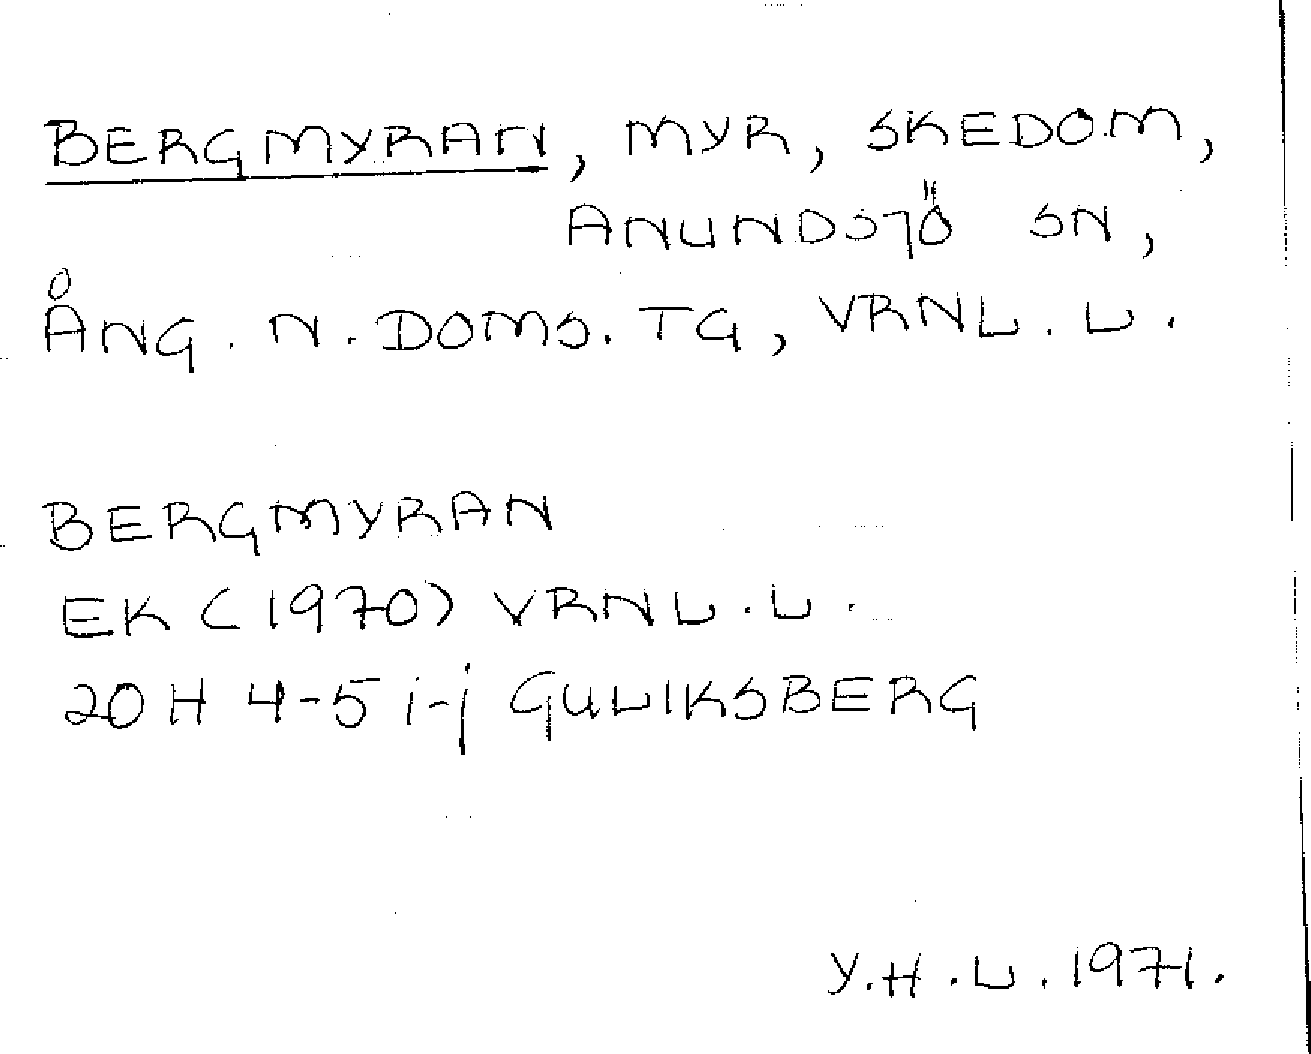 BERGMYRAN, MYR, SKEDOM,
ANUNDSJÖ SN,
ÅNG. N. DOMS. TG, VRNL. L.
BERGMYRAN
EK (1970) VRNL. L.
20 H 4-5 i-j GULLIKSBERG
Y.H.L. 1971.